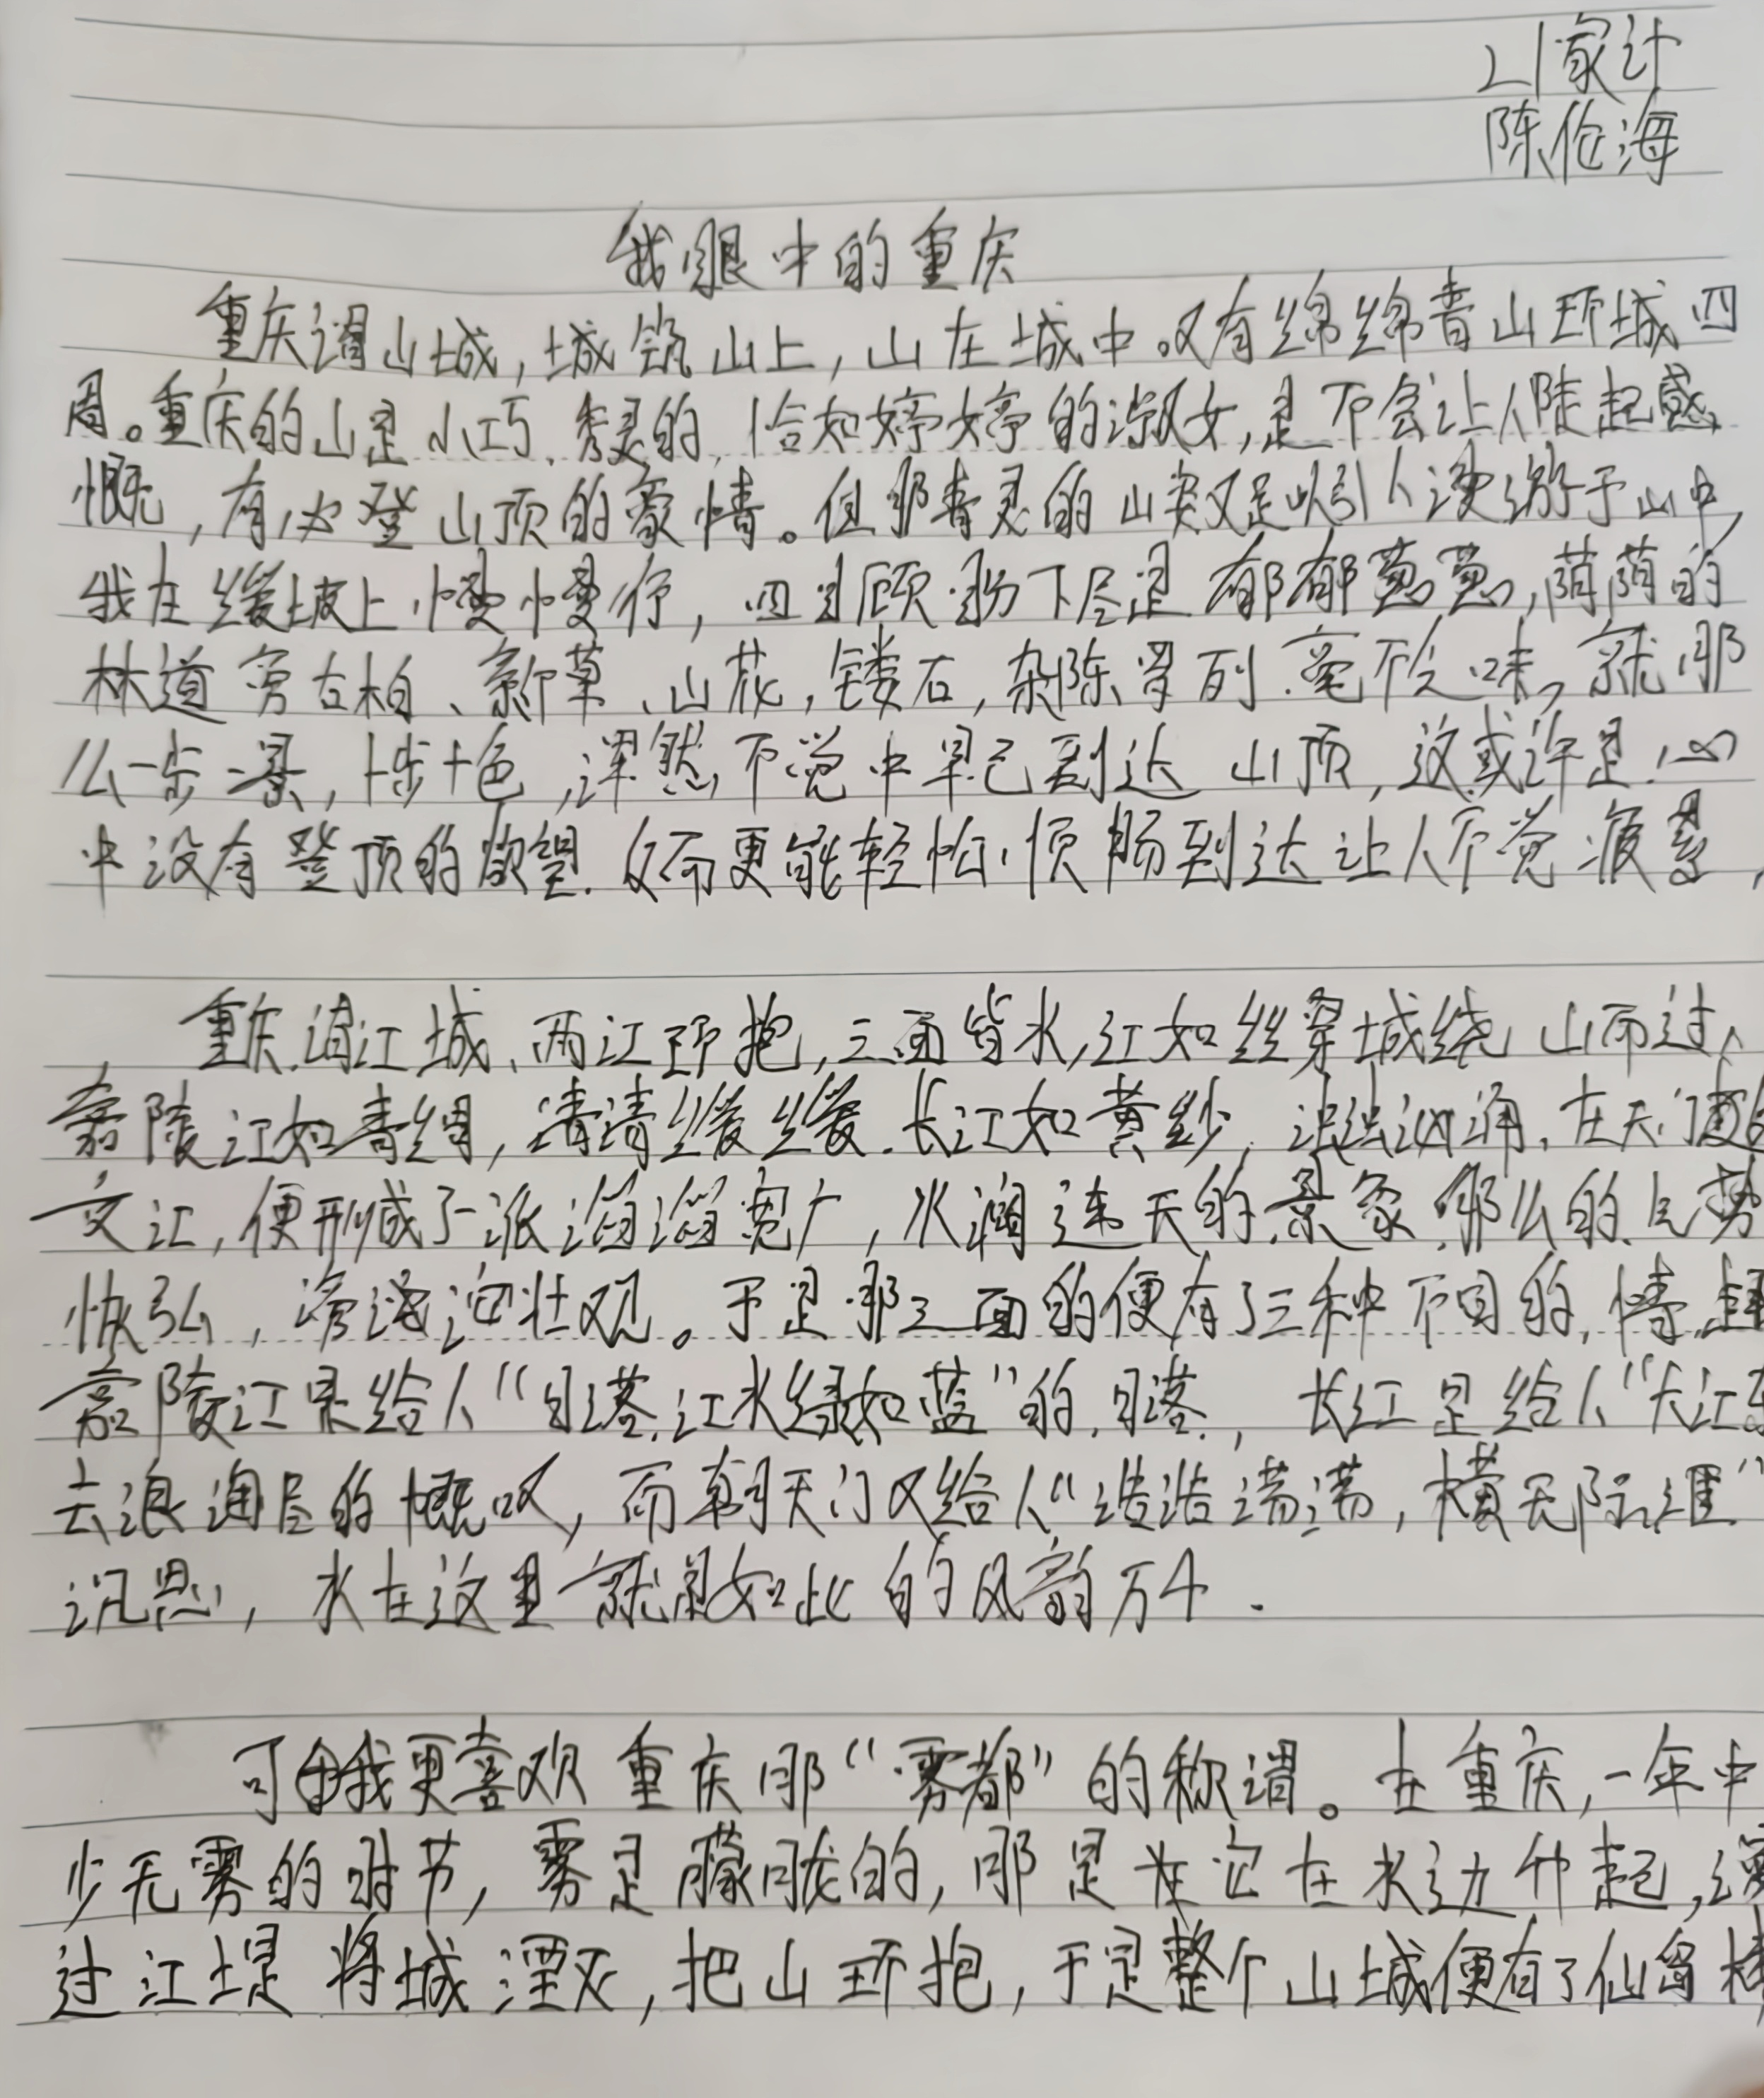 陈伦海
我眼中的重庆
重庆谓山城,城筑山上,山在城中。又有绵绵青山环城四
周。重庆的山是小巧、秀灵的,恰如婷婷的淑女,是不会让人陡起感
慨,有必登山顶的豪情。但那青灵的山类又足以引人漫游于山中,
我在缓坡上慢慢行,四顾盼下尽是郁郁葱葱,荫荫的
林道旁古柏、新草、山花,镂石,杂陈罗列.毫不乏味,就那
么一步一景,十步十色,浑然不觉中早已到达山顶,这或许是心
中没有登顶的欲望.反而更能轻松顺畅到达让人不觉疲累,
重庆谓江城、两江环抱,三面皆水,江如丝穿城绕山而过,
嘉陵江如青绸,清清缓缓.长江如黄纱,混混汹涌.在天门
交汇,便形成了一派滔滔宽广,水润连天的景象.那么的气势
恢弘,沧海迎壮观。于是那三面的便有了三种不同的情
嘉陵江是给人“日落江水绿如蓝”的日落,长江是给人“大江东
去浪淘尽的慨叹,而朝天门又给人“浩浩荡荡,横无际涯”
沉思,水在这里就是如此的风韵万千.
可我更喜欢重庆那“雾都”的称谓。在重庆,一年中
少无雾的时节,雾是朦胧的,那是在它在水边升起,漫
过江堤将城湮灭,把山环抱,于是整个山城便有了仙